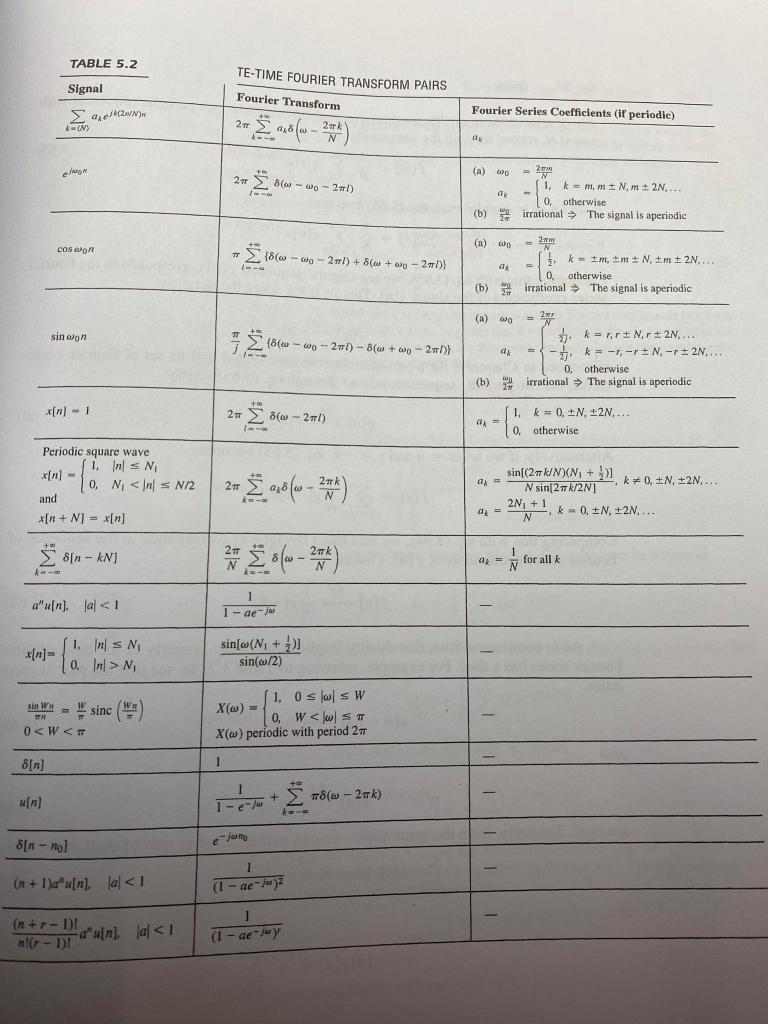 TABLE 5.2
TE-TIME FOURIER TRANSFORM PAIRS
Signal | Fourier Transform | Fourier Series Coefficients (if periodic)
∑_{k=⟨N⟩} a_k e^{jk(2π/N)n} | 2π ∑_{k=−∞}^{+∞} a_k δ(ω − 2πk/N) | a_k
e^{jω₀n} | 2π ∑_{l=−∞}^{+∞} δ(ω − ω₀ − 2πl) | (a) ω₀ = 2πm/N
a_k = { 1, k = m, m ± N, m ± 2N, ...
0, otherwise
(b) ω₀/2π irrational ⇒ The signal is aperiodic
cos ω₀n | π ∑_{l=−∞}^{+∞} {δ(ω − ω₀ − 2πl) + δ(ω + ω₀ − 2πl)} | (a) ω₀ = 2πm/N
a_k = { 1/2, k = ±m, ±m ± N, ±m ± 2N, ...
0, otherwise
(b) ω₀/2π irrational ⇒ The signal is aperiodic
sin ω₀n | π/j ∑_{l=−∞}^{+∞} {δ(ω − ω₀ − 2πl) − δ(ω + ω₀ − 2πl)} | (a) ω₀ = 2πr/N
a_k = { 1/2j, k = r, r ± N, r ± 2N, ...
−1/2j, k = −r, −r ± N, −r ± 2N, ...
0, otherwise
(b) ω₀/2π irrational ⇒ The signal is aperiodic
x[n] = 1 | 2π ∑_{l=−∞}^{+∞} δ(ω − 2πl) | a_k = { 1, k = 0, ±N, ±2N, ...
0, otherwise
Periodic square wave
x[n] = { 1, |n| ≤ N₁
0, N₁ < |n| ≤ N/2
and
x[n + N] = x[n] | 2π ∑_{k=−∞}^{+∞} a_k δ(ω − 2πk/N) | a_k = sin[(2πk/N)(N₁ + 1/2)] / N sin[2πk/2N], k ≠ 0, ±N, ±2N, ...
a_k = (2N₁ + 1)/N, k = 0, ±N, ±2N, ...
∑_{k=−∞}^{+∞} δ[n − kN] | 2π/N ∑_{k=−∞}^{+∞} δ(ω − 2πk/N) | a_k = 1/N for all k
aⁿu[n], |a| < 1 | 1/(1 − ae^{−jω}) | —
x[n] = { 1, |n| ≤ N₁
0, |n| > N₁ | sin[ω(N₁ + 1/2)] / sin(ω/2) | —
sin Wn/πn = W/π sinc (Wn/π)
0 < W < π | X(ω) = { 1, 0 ≤ |ω| ≤ W
0, W < |ω| ≤ π
X(ω) periodic with period 2π | —
δ[n] | 1 | —
u[n] | 1/(1 − e^{−jω}) + ∑_{k=−∞}^{+∞} πδ(ω − 2πk) | —
δ[n − n₀] | e^{−jωn₀} | —
(n + 1)aⁿu[n], |a| < 1 | 1/(1 − ae^{−jω})² | —
(n + r − 1)!/n!(r − 1)! aⁿu[n], |a| < 1 | 1/(1 − ae^{−jω})^r | —